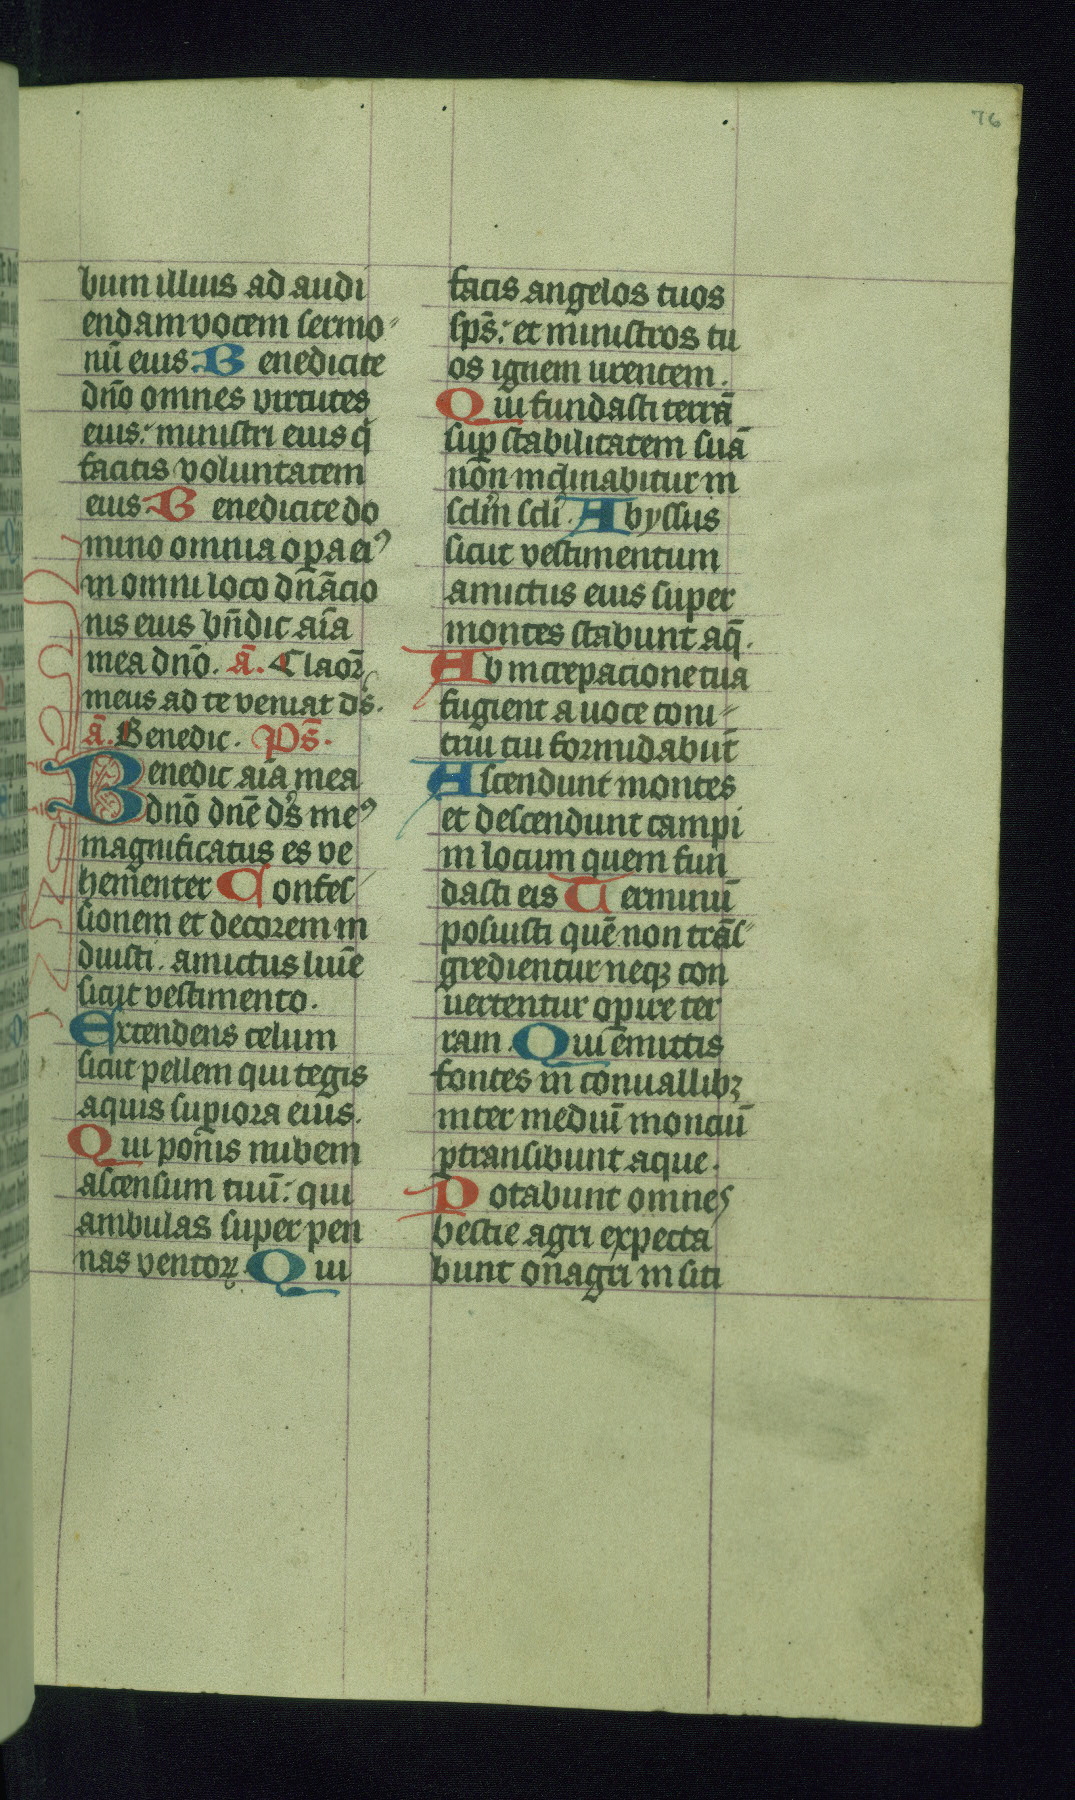 76
bum illius ad audi
endam vocem sermo
nū eius: Benedicite
dn̄o omnes virtutes
eius: ministri eius q̄
facitis voluntatem
eius: Benedicite do
mino omnia oꝑa eiꝰ
in omni loco dn̄acio
nis eius bn̄dic aīa
mea dn̄o. ā. Claor̄
meus ad te veniat ds̄.
ā. Benedic. Ps̄.
Benedic aīa mea
dn̄o dn̄e ds̄ meꝰ
magnificatus es ve
hem̄enter Confes
sionem et decorem in
duisti. amictus lum̄e
sicut vestimento.
Extendens celum
sicut pellem qui tegis
aquis suꝑiora eius.
Qui pon̄is nubem
ascensum tuū: qui
ambulas super pen
nas ventoꝝ. Qui
facis angelos tuos
sps̄: et ministros tu
os ignem urentem.
Qui fundasti terrā
suꝑ stabilitatem suā
non inclinabitur in
sclm̄ scli. Abyssus
sicut vestimentum
amictus eius super
montes stabunt aq̄.
Ab increpacione tua
fugient a uoce toni
trui tui formidabūt
Ascendunt montes
et descendunt campi
in locum quem fun
dasti eis Terminū
posuisti quē non trās
gredientur neqꝫ con
uertentur oꝑire ter
ram. Qui emittis
fontes in conuallibꝫ
inter mediū monciū
ꝑtransibunt aque.
Potabunt omnes
bestie agri expecta
bunt on̄agri in siti